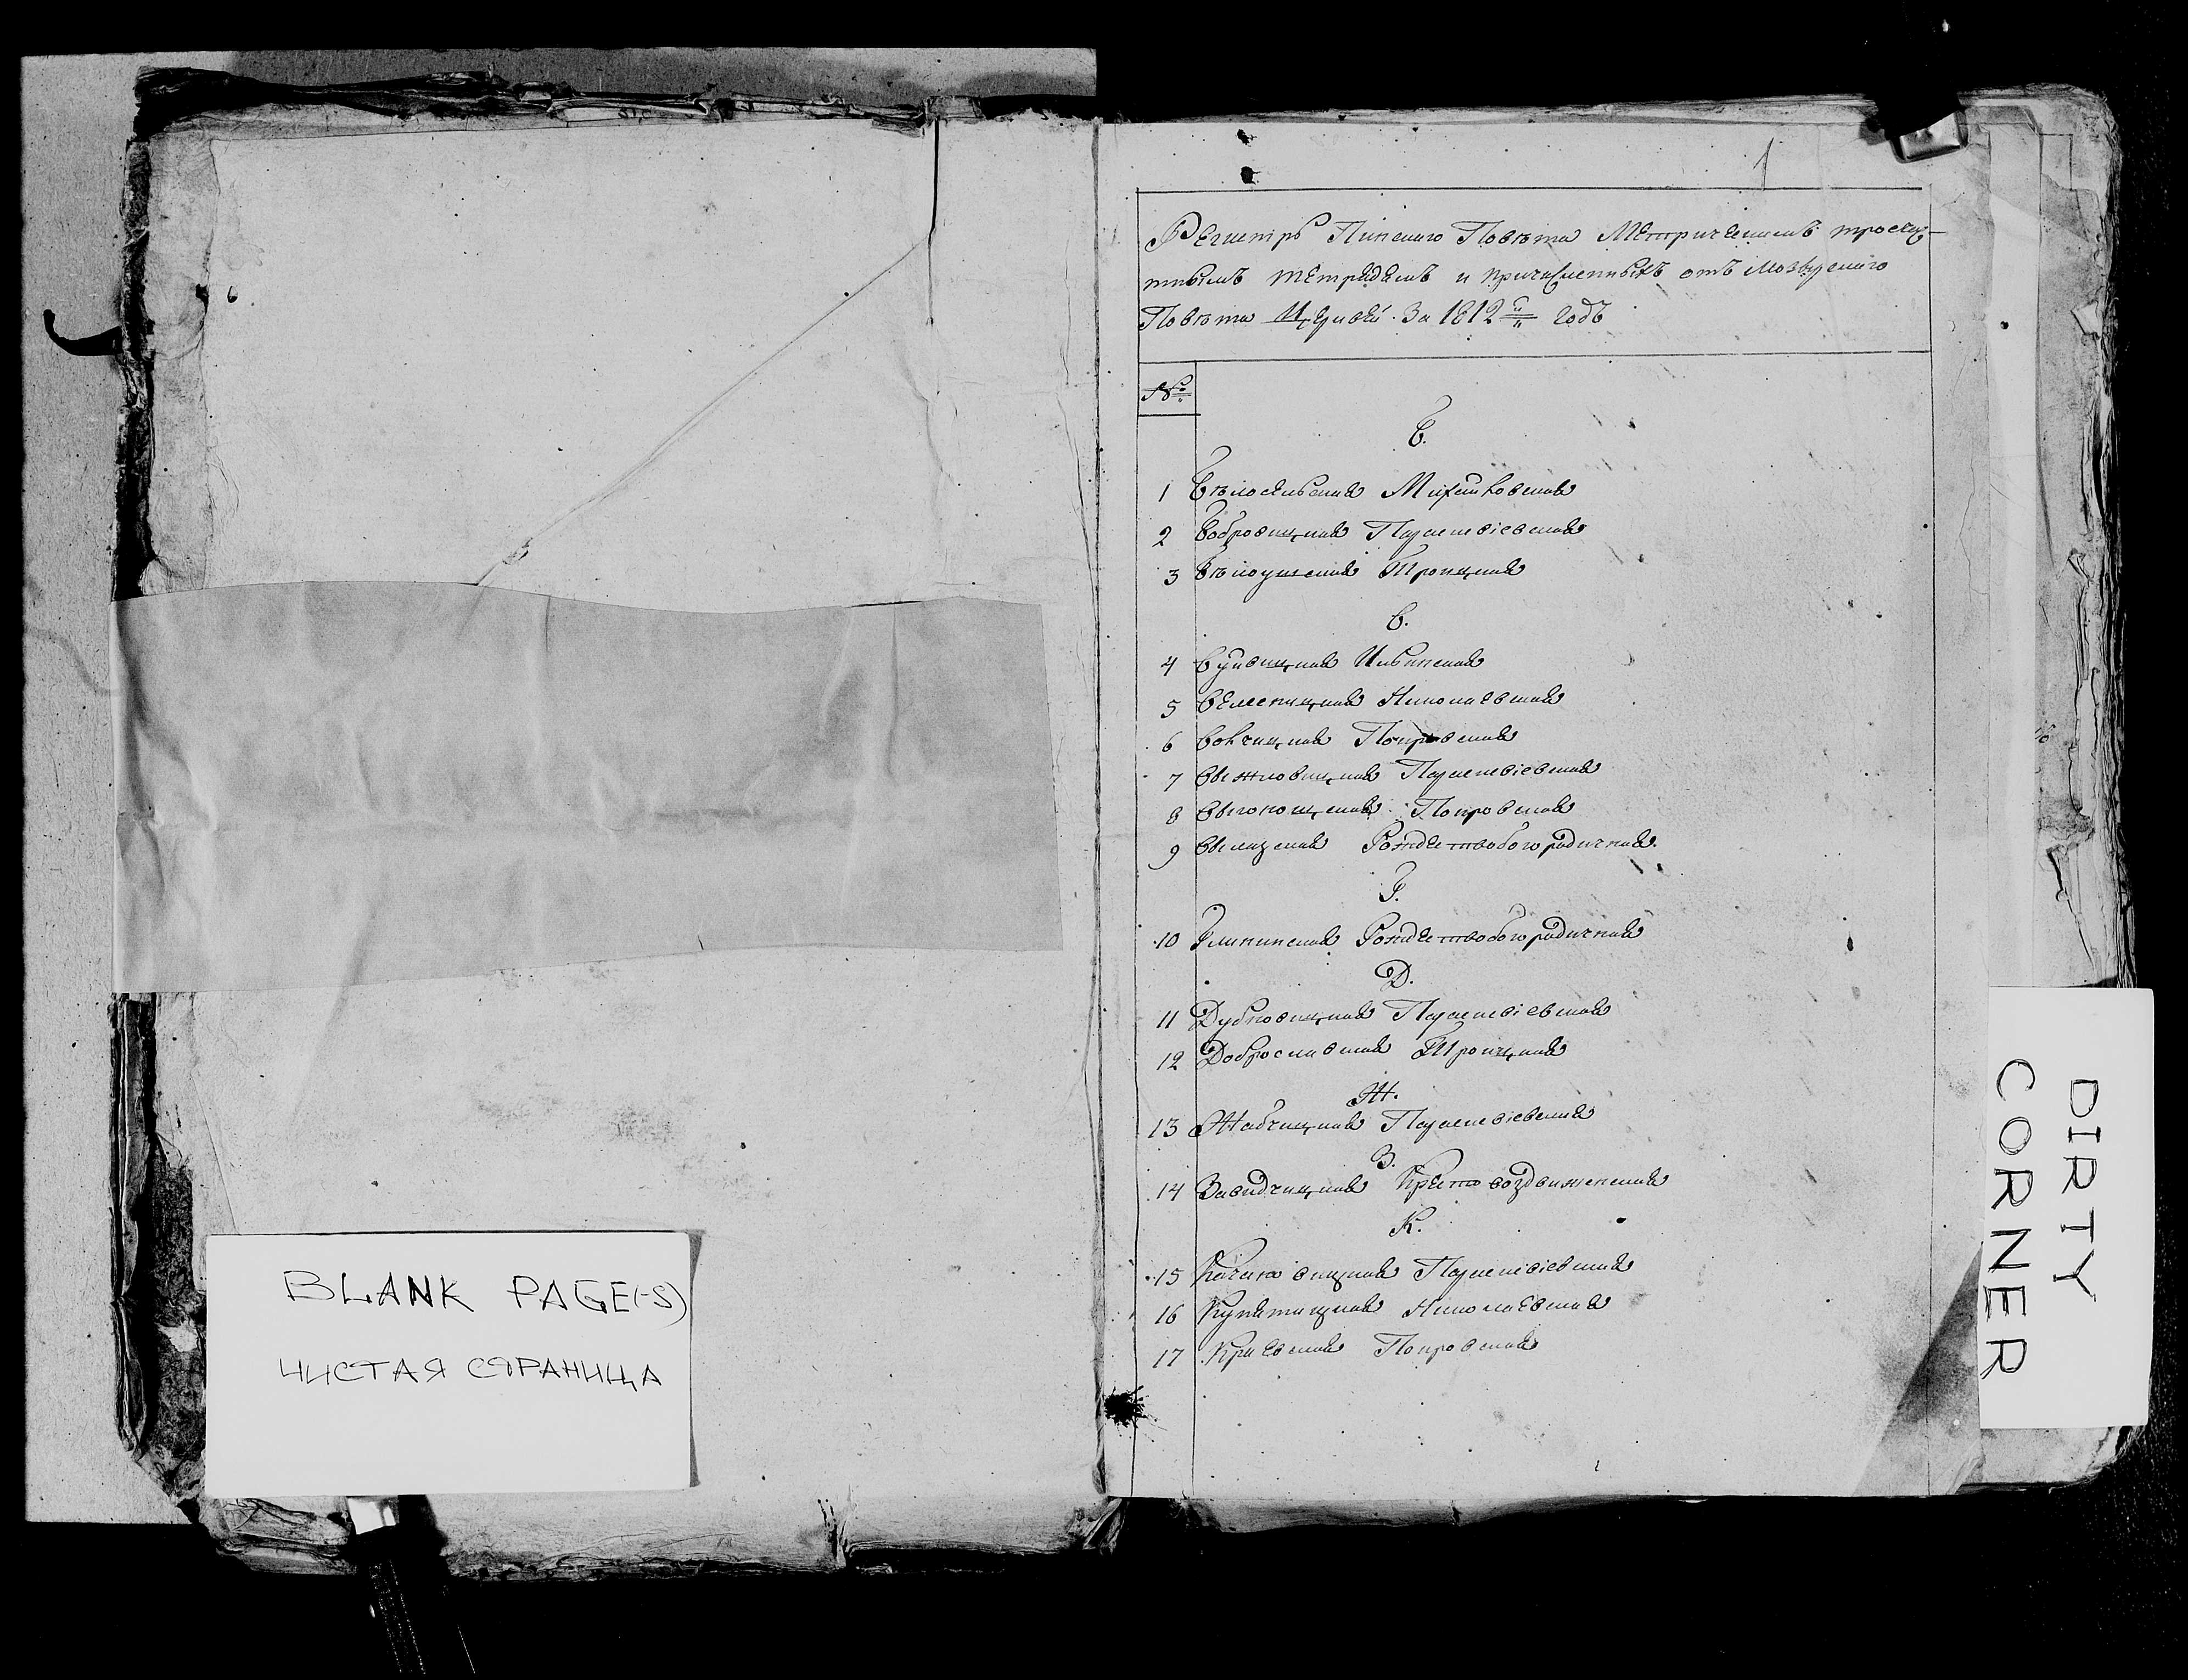 BLANK PAGE(-S)
ЧИСТАЯ СТРАНИЦА
1
Регистръ Пинского Повѣта Метрическимъ троечас-
тнымъ тетрадямъ и причисленныхъ отъ Мозырского
Повѣта Церквей. За 1812й годъ
№
Б.
1 Бѣлосельская Михайловская
2 Бобровицкая Параскевіевская
3 Бѣлоушская Троицкая
В.
4 Вуйвицкая Ильинская
5 Велесницкая Николаевская
6 Волчицкая Покровская
7 Выжловицкая Параскевіевская
8 Выгонощская Покровская
9 Рождествобогородичная
Г.
10 Глининская Рождествобогородичная
Д.
11 Дубновицкая Параскевіевская
12 Доброславская Троицкая
Ж.
13 Жабчицкая Параскевіевская
З.
14 Завидчицкая Крестовоздвиженская
К.
15 Качановицкая Параскевіевская
16 Купятицкая Николаевская
17 Краевская Покровская
DIRTY
CORNER